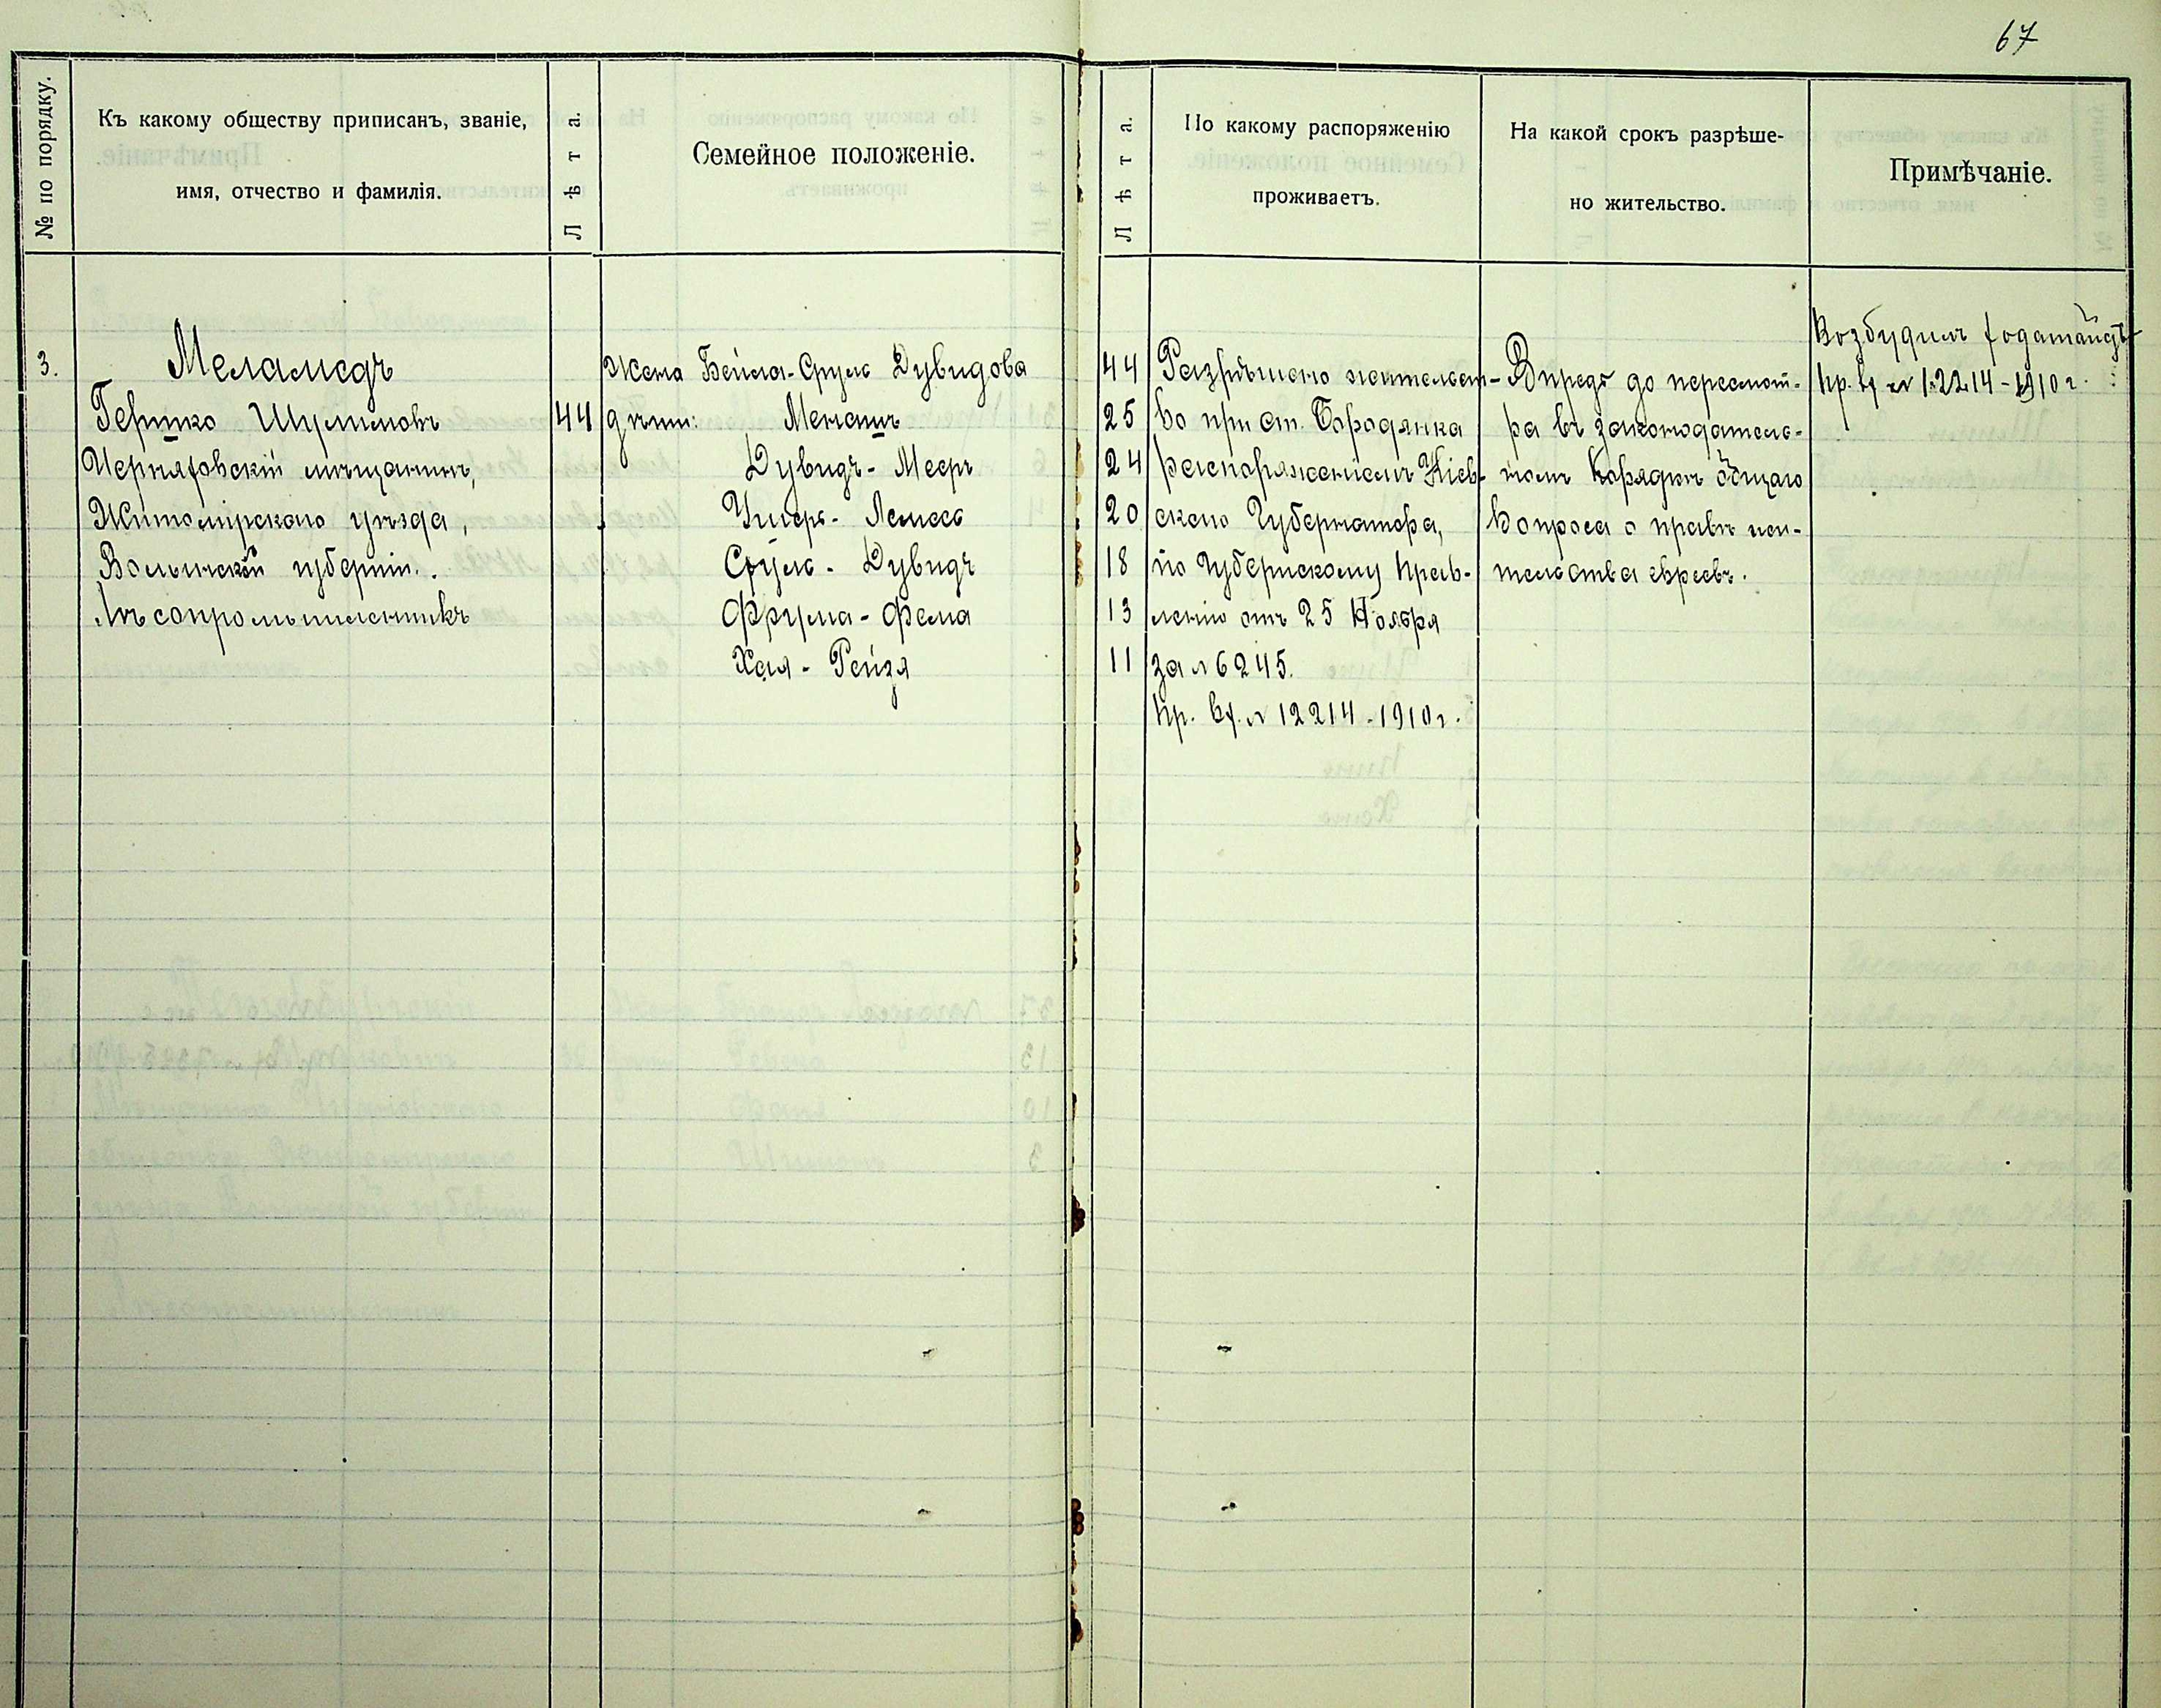 67
№ по порядку.
Къ какому обществу приписанъ, званіе,
имя, отчество и фамилія.
Лѣта.
Семейное положеніе.
Лѣта.
По какому распоряженію
проживаетъ.
На какой срокъ разрѣше-
но жительство.
Примѣчаніе.
3.
Меламедъ
Гершко Шулимовъ
Черняховскій мѣщанинъ,
Житомірскаго уѣзда,
Волынской губерніи.
Лѣсопромышленникъ
44
Жена Бейла-Сруль Дувидова
дѣти: Менашъ
Дувидъ - Мееръ
Ушеръ - Лемесъ
Сруль - Дувидъ
Фрума - Фейга
Хая - Рейзя
44
25
24
20
18
13
11
Разрѣшено жительст-
во при ст. Бородянка
распоряженіемъ Кіев-
скаго Губернатора,
по Губернскому Прав-
ленію отъ 25 Ноября
за № 6245.
Пр. вх. № 12214 - 1910 г.
Впредь до пересмот-
ра въ законодатель-
номъ порядкѣ общаго
вопроса о правѣ жи-
тельства евреевъ.
Возбудилъ ходатайств
пр. вх № 12214 - 1910 г.